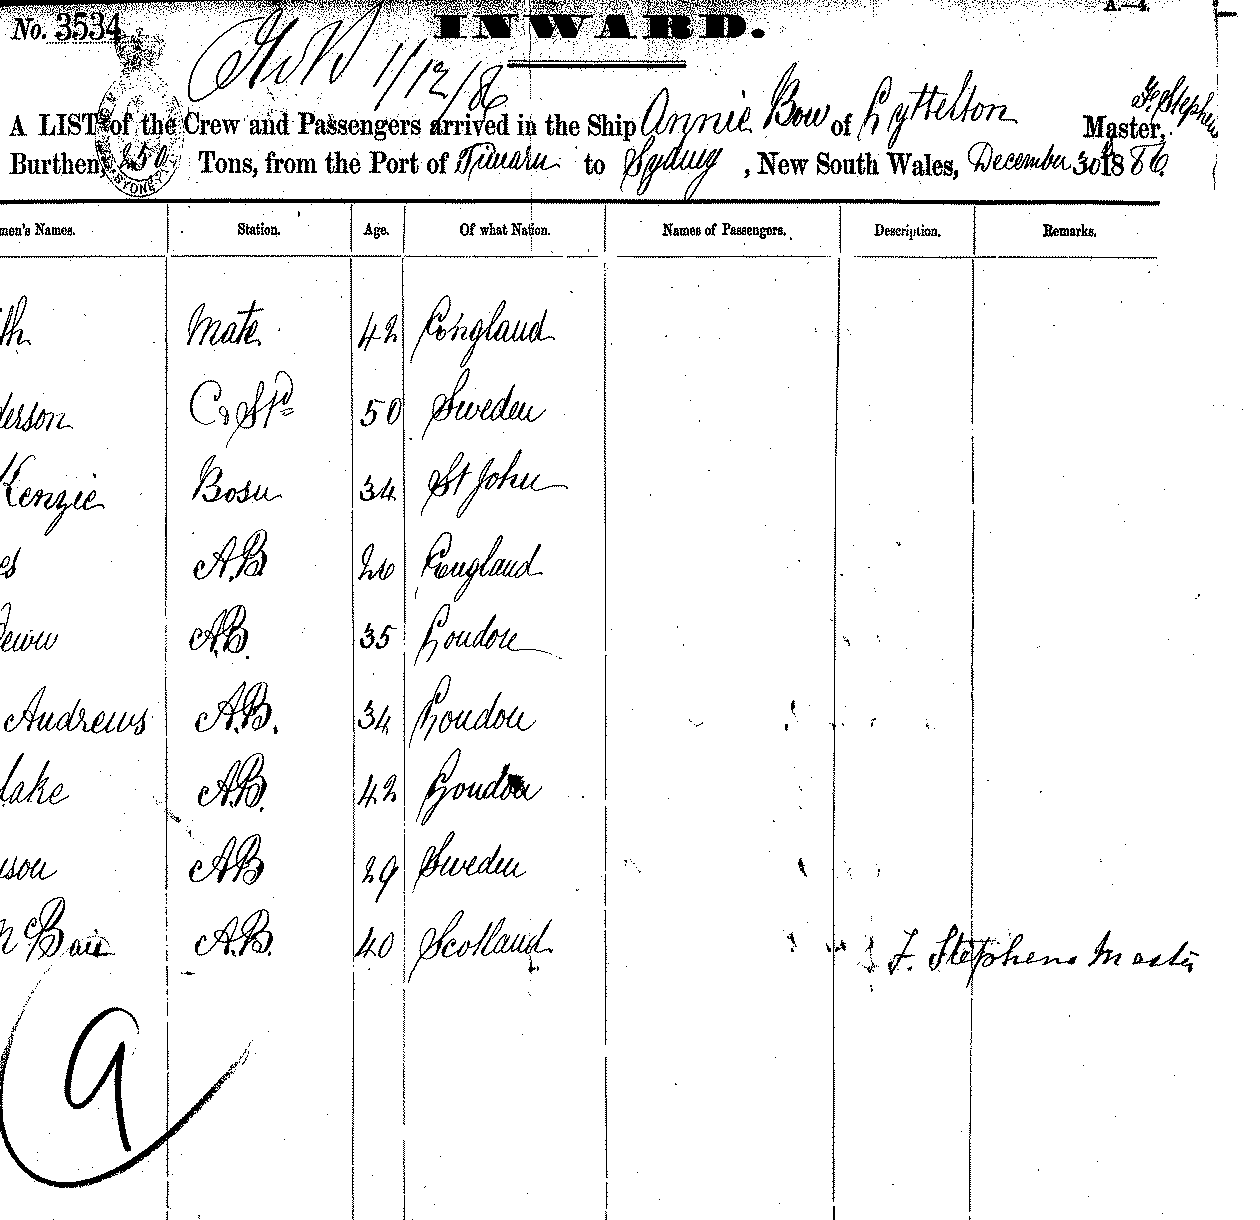 No. 3534
INWARD.
A.—4.
1/12/86
A LIST of the Crew and Passengers arrived in the Ship Annie Bow of Lyttelton F. Stephens Master,
Burthen, 250 Tons, from the Port of Timaru to Sydney, New South Wales, December 30th 1886
men's Names. Station. Age. Of what Nation. Names of Passengers. Description. Remarks.
th Mate 42 England
derson C & Std 50 Sweden
Kenzie Bosn 34 St John
es A.B 26 England
A.B. 35 London
Andrews A.B. 34 London
lake A.B. 42 London
nson AB 29 Sweden
McBain A.B. 40 Scotland
F. Stephens Master
9